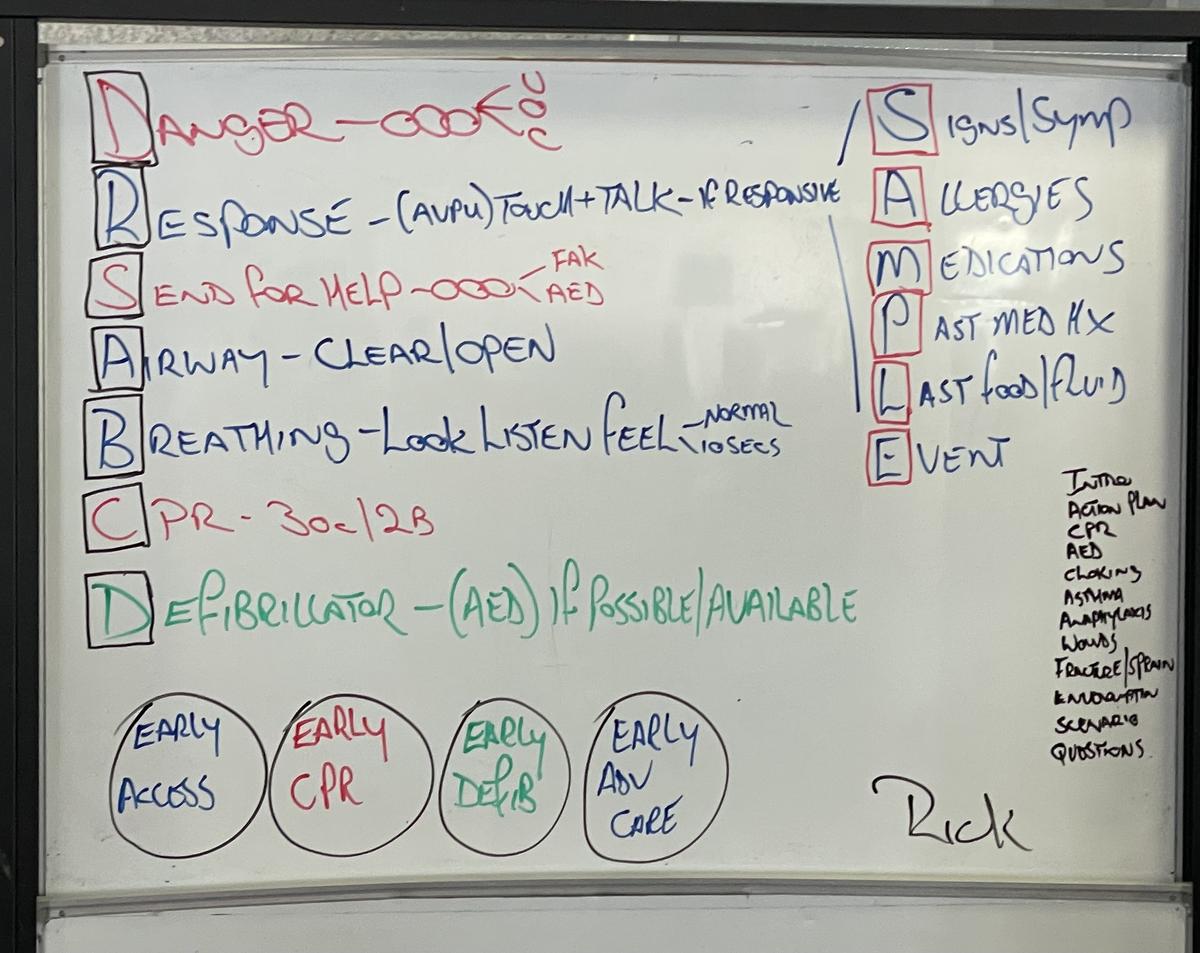 DANGER - 000 < U O C
RESPONSE - (AVPU) TOUCH + TALK - IF RESPONSIVE
SEND FOR HELP - 000 < FAK AED
AIRWAY - CLEAR/OPEN
BREATHING - LOOK LISTEN FEEL < NORMAL 10 SECS
CPR - 30c/2B
DEFIBRILLATOR - (AED) IF POSSIBLE/AVAILABLE
SIGNS/SYMP
ALLERGIES
MEDICATIONS
PAST MED HX
LAST FOOD/FLUID
EVENT
INTRO
ACTION PLAN
CPR
AED
CHOKING
ASTHMA
ANAPHYLAXIS
WOUNDS
FRACTURE/SPRAIN
SCENARIO
QUESTIONS
EARLY
ACCESS
EARLY
CPR
EARLY
DEFIB
EARLY
ADV
CARE
Rick